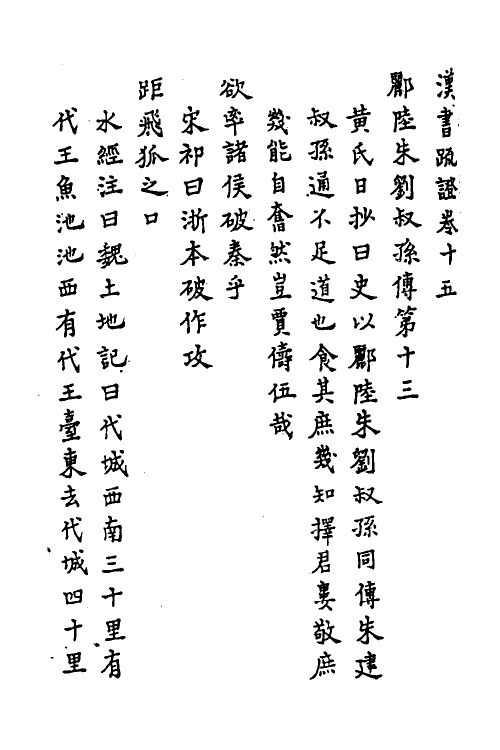 漢書疏證卷十五
酈陸朱劉叔孫傳第十三
黃氏日抄曰史以酈陸朱劉叔孫同傳朱建
叔孫通不足道也食其庶幾知擇君婁敬庶
幾能自奮然豈賈儔伍哉
欲率諸侯破秦乎
宋祁曰浙本破作攻
距飛狐之口
水經注曰魏土地記曰代城西南三十里有
代王魚池池西有代王臺東去代城四十里